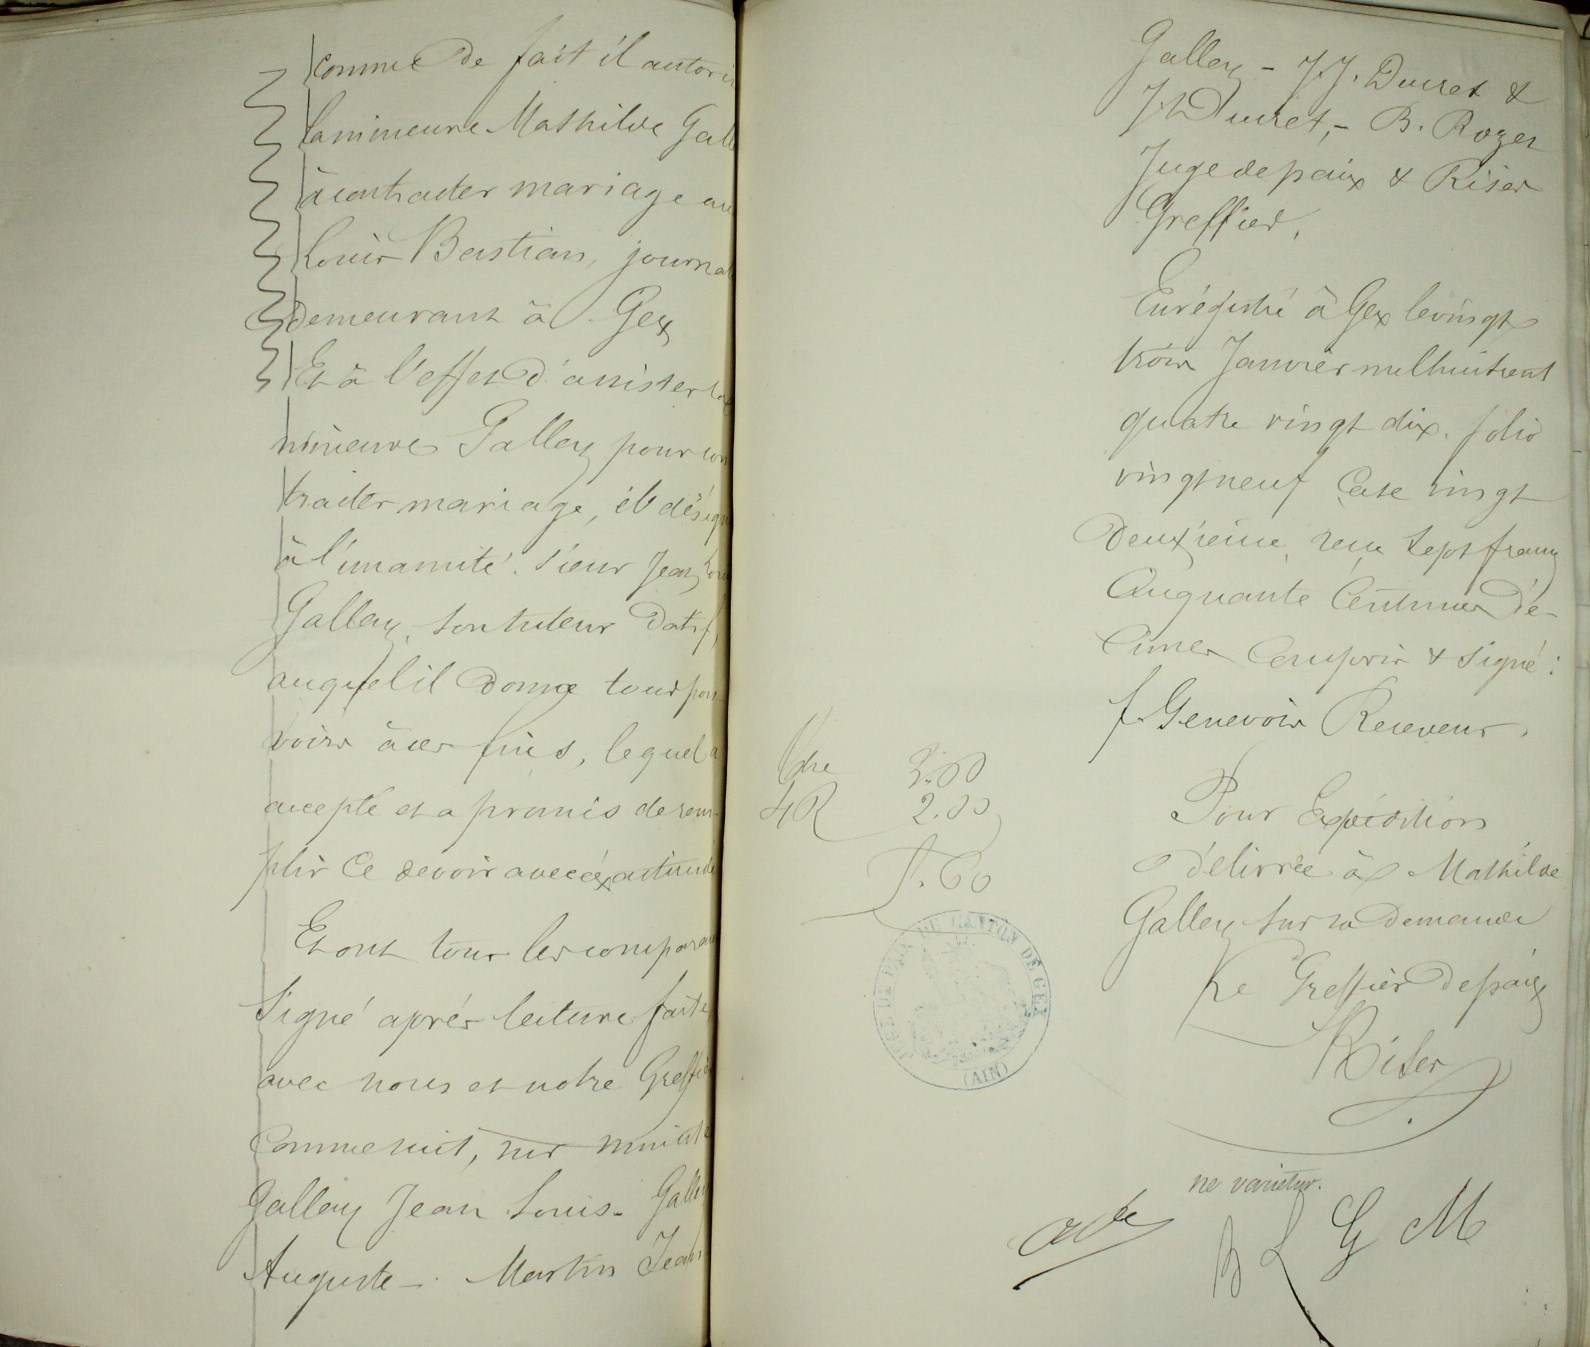 comme de fait il autori
la mineure Mathilde Gall
à contracter mariage av
Louis Bastian, journal
demeurant à Gex
Et à l'effet d'assister la
mineure Galley pour con
tracter mariage, il désign
à l'unanimité. Sieur Jean Lou
Galley, son tuteur Datif,
auquel il donne tous pou
voirs à ces fins, lequel a
accepté et a promis de rem-
plir ce devoir avec éxactitude
Et ont tous les comparan
signé après lecture faite
avec nous et notre Greffie
Comme suit, sur minute
Galley Jean Louis - Galley
Auguste - Martin Jean
Galley - J.J. Ducret &
Jh Ducret, - B. Rozer
Juge de paix & Riser
Greffier.
Enrégistré à Gex le vingt
trois Janvier mil huit cent
quatre vingt dix. folio
vingt neuf Case vingt
Deuxième, reçu Sept francs
Cinquante Centimes Dé-
cimes Compris & Signé :
f. Genevois Receveur.
3.60
4 R 2.00
5.60
Pour Expédition
Délivrée à Mathilde
Galley sur sa demande
Le Greffier de paix
Riser
JUGE DE PAIX DE CANTON DE GEX
(AIN)
ne varietur.
B L G M